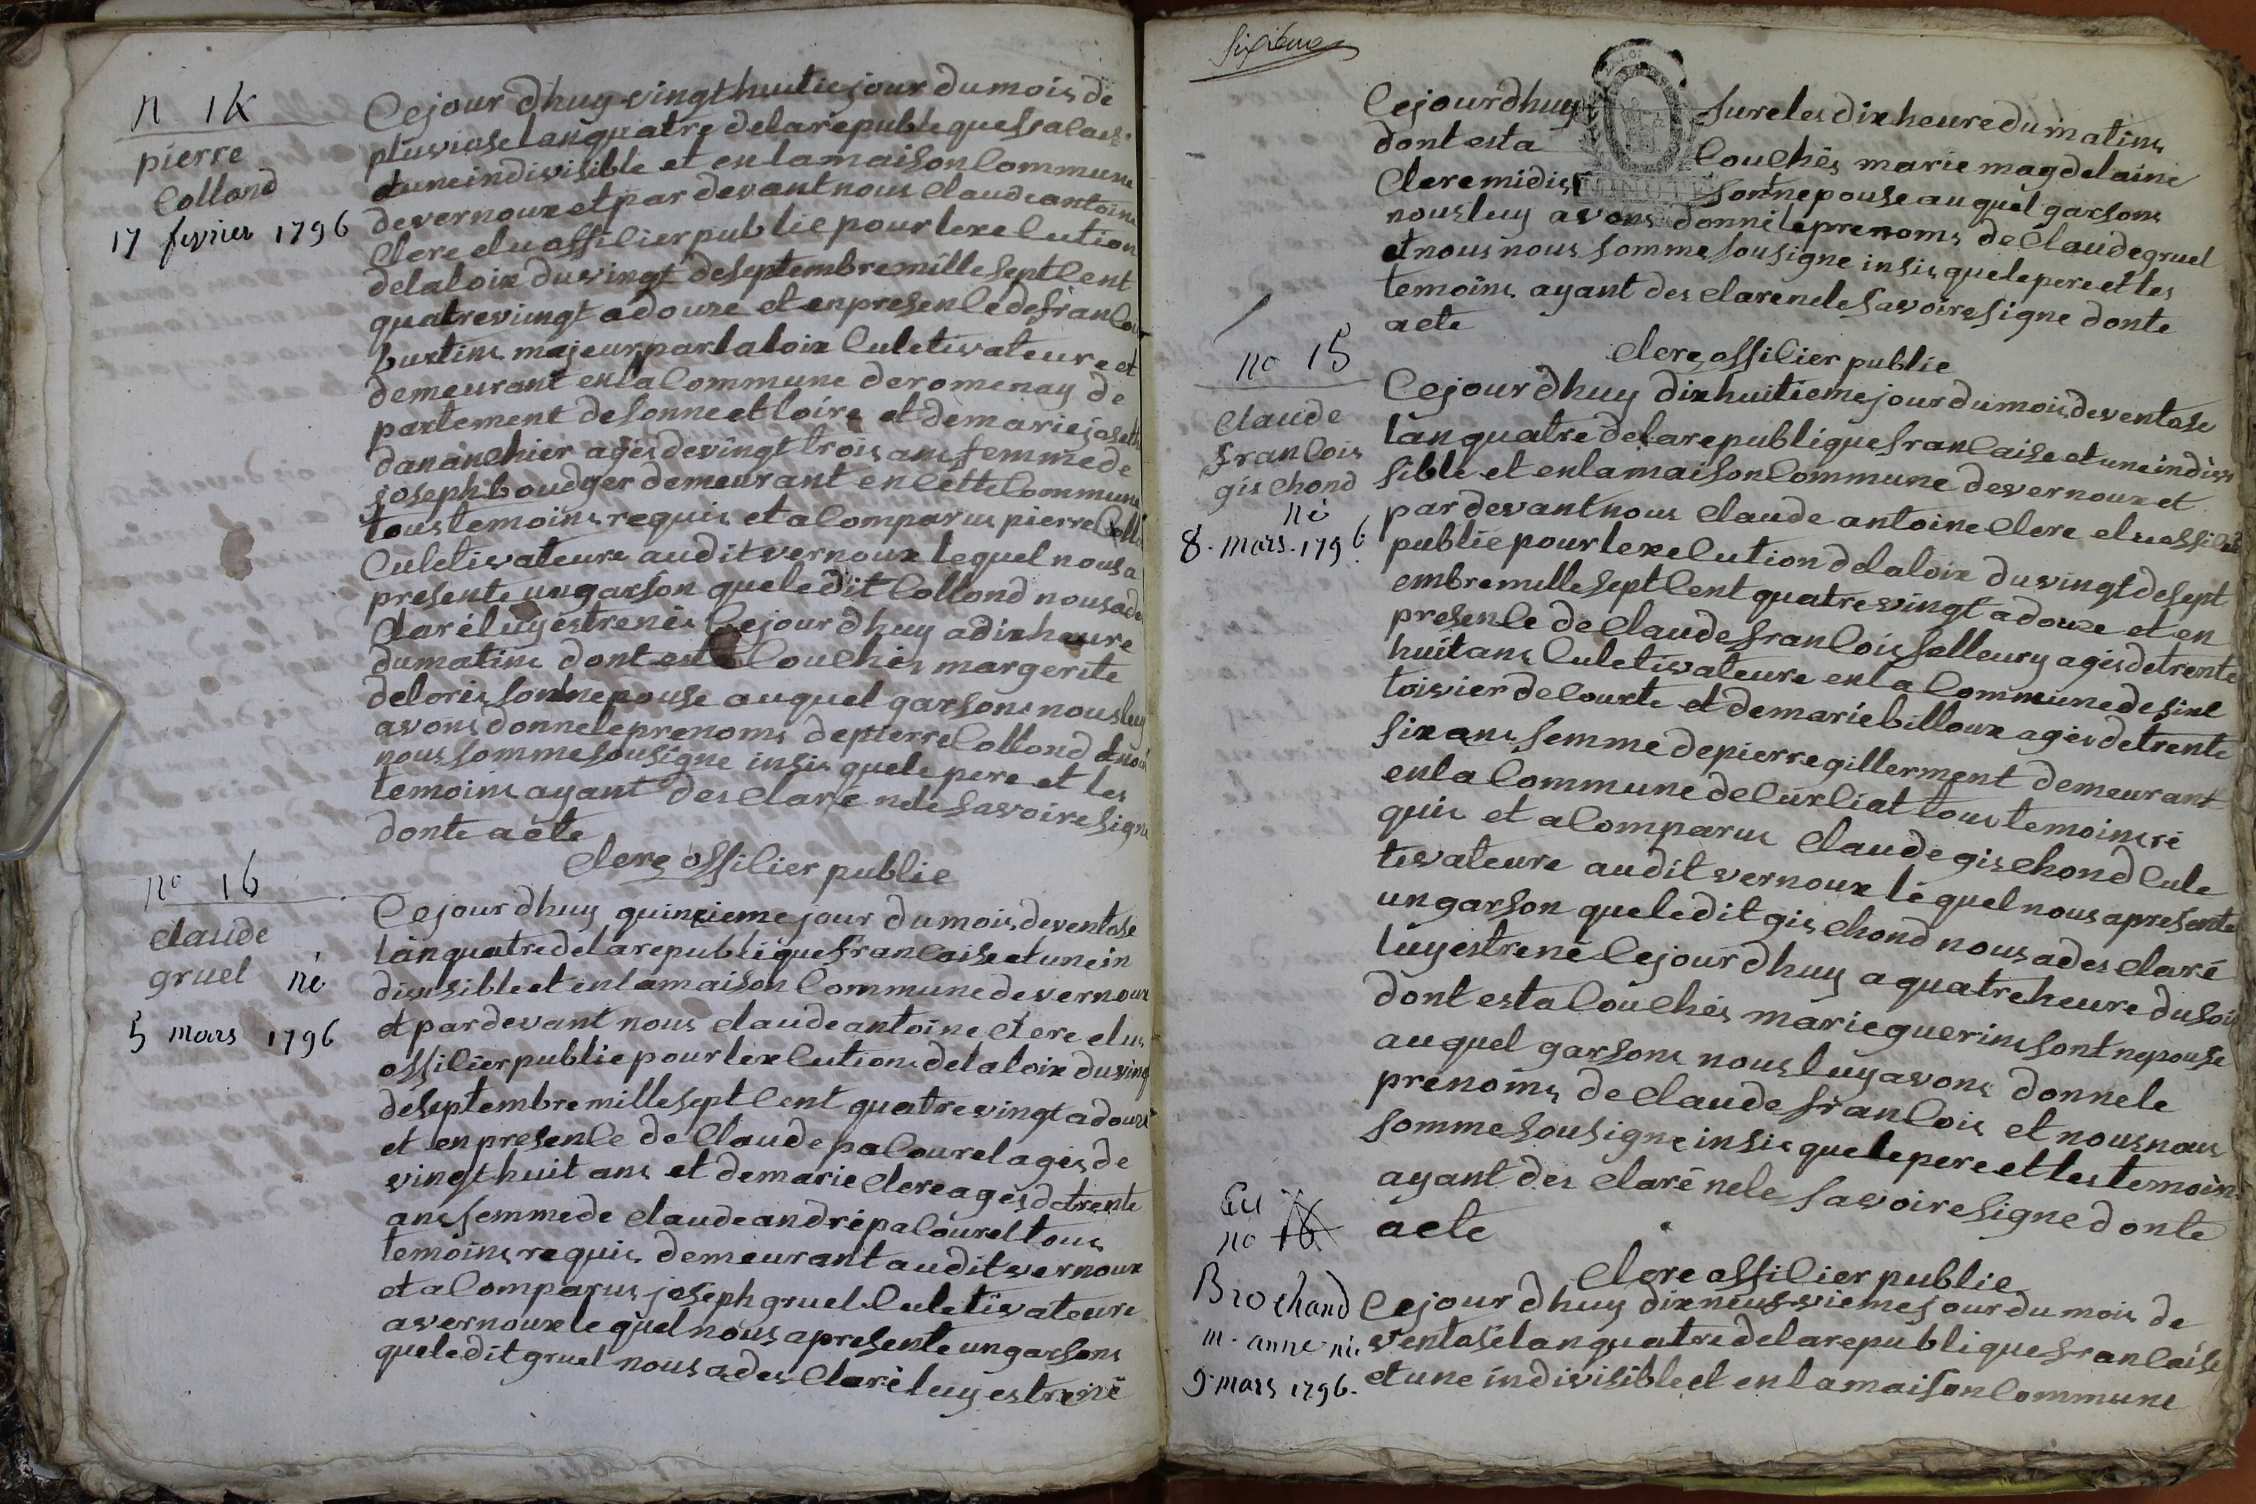 n 1k
pierre
Collond
17 fevrier 1796
Cejour dhuy vingt huitie jour dumois de
pluviose lanquatre delarepublique fralais
etuneindivisible et en lamaison Commune
devernoux et par devant nous Claude antoine
Clere elu offilier publie pour lexelution
delaloix du vingt deseptembre mille sept Cent
quatrevingt adouze et enpresenle defranlois
burtins majeur parlaloix Culetivateure et
demeurant enla Commune deromenay de
partement desonne et loire et demarie josette
dananchier agés devingt trois ans femmede
joseph boudger demeurant en Cette Commune
tous temoins requis et a Comparus pierre Collo
Culetivateure audit vernoux lequel nousa
presente ungarson queledit Collond nousade
Claré luy estrenés Cejour dhuy adix heure
dumatins dont est Couchés margerite
deloris sontnepouse auquel garsons nousluy
avons donneleprenoms depierre Collond et nous
nous sommesousigne insis quele pere et les
temoins ayant desclaré nele savoire signe
donte acte
Clere offilier publie
no 16
claude
gruel né
5 mars 1796
Cejour dhuy quinzieme jour dumois deventose
lanquatre delarepublique franlaise et unein
divisible et enlamaison Commune devernoux
et pardevant nous claude antoine Clere elus
offilier publie pour lexlutions delaloix duving
deseptembre mille sept Cent quatrevingt adouze
et enpresenle de Claude palourel agés de
vingt huit ans et demarie Clere agés detrente
ans femmede claude andré palourel tous
temoins requis demeurant audit vernoux
et a Comparus joseph gruel Culetivateure
avernoux le quel nous apresente ungarsons
queledit gruel nous adesclaré luy estrené
sixième
Cejourdhuy sureles dix heure du matins
dont esta Couchés marie magdelaine
Cleremidis sontnepouse auquel garsons
nousluy avons donné leprenoms de Claudegruel
et nous nous somme sousigne insis quelepere et les
temoins ayant desclarenele savoire signe donte
acte
Clere offilier publie
no 15
Claude
franlois
gischond
né
8. mars. 1796
Cejour dhuy dixhuitieme jour dumois deventose
lanquatre delarepublique franlaise et uneindivi
sible et enlamaison Commune devernoux et
par devant nous Claude antoine Clere elu offilier
publie pour lexelution delaloix du vingt desept
embre mille sept Cent quatrevingt adouze et en
presenle de Claude franlois felleury agés detrente
huit ans Culetivateure enla Commune desint
toivier decourte et demarie billoux agés detrente
six ans femme depierre gillerment demeurant
enla Commune de Curliat tous temoins re
quis et a Comparus Claude gischond Cule
tivateure audit vernoux lé quel nous apresente
ungarson queledit gischond nous adesclaré
luyestrené Cejour dhuy a quatre heure dusoir
dont esta Couchés marie guerins sont nepouse
auquel garsons nous luyavons donnele
prenoms de Claude franlois et nous nous
somme sousigne insis quelepere et les temoins
ayant desclaré nele savoire signe donte
acte
Clere offilier publie
no 16
Brochand
m. anne né
9. mars 1796.
Cejour dhuy dixneufvieme jour du mois de
ventose lanquatre delarepublique franlaise
et une indivisible et enlamaison Commune